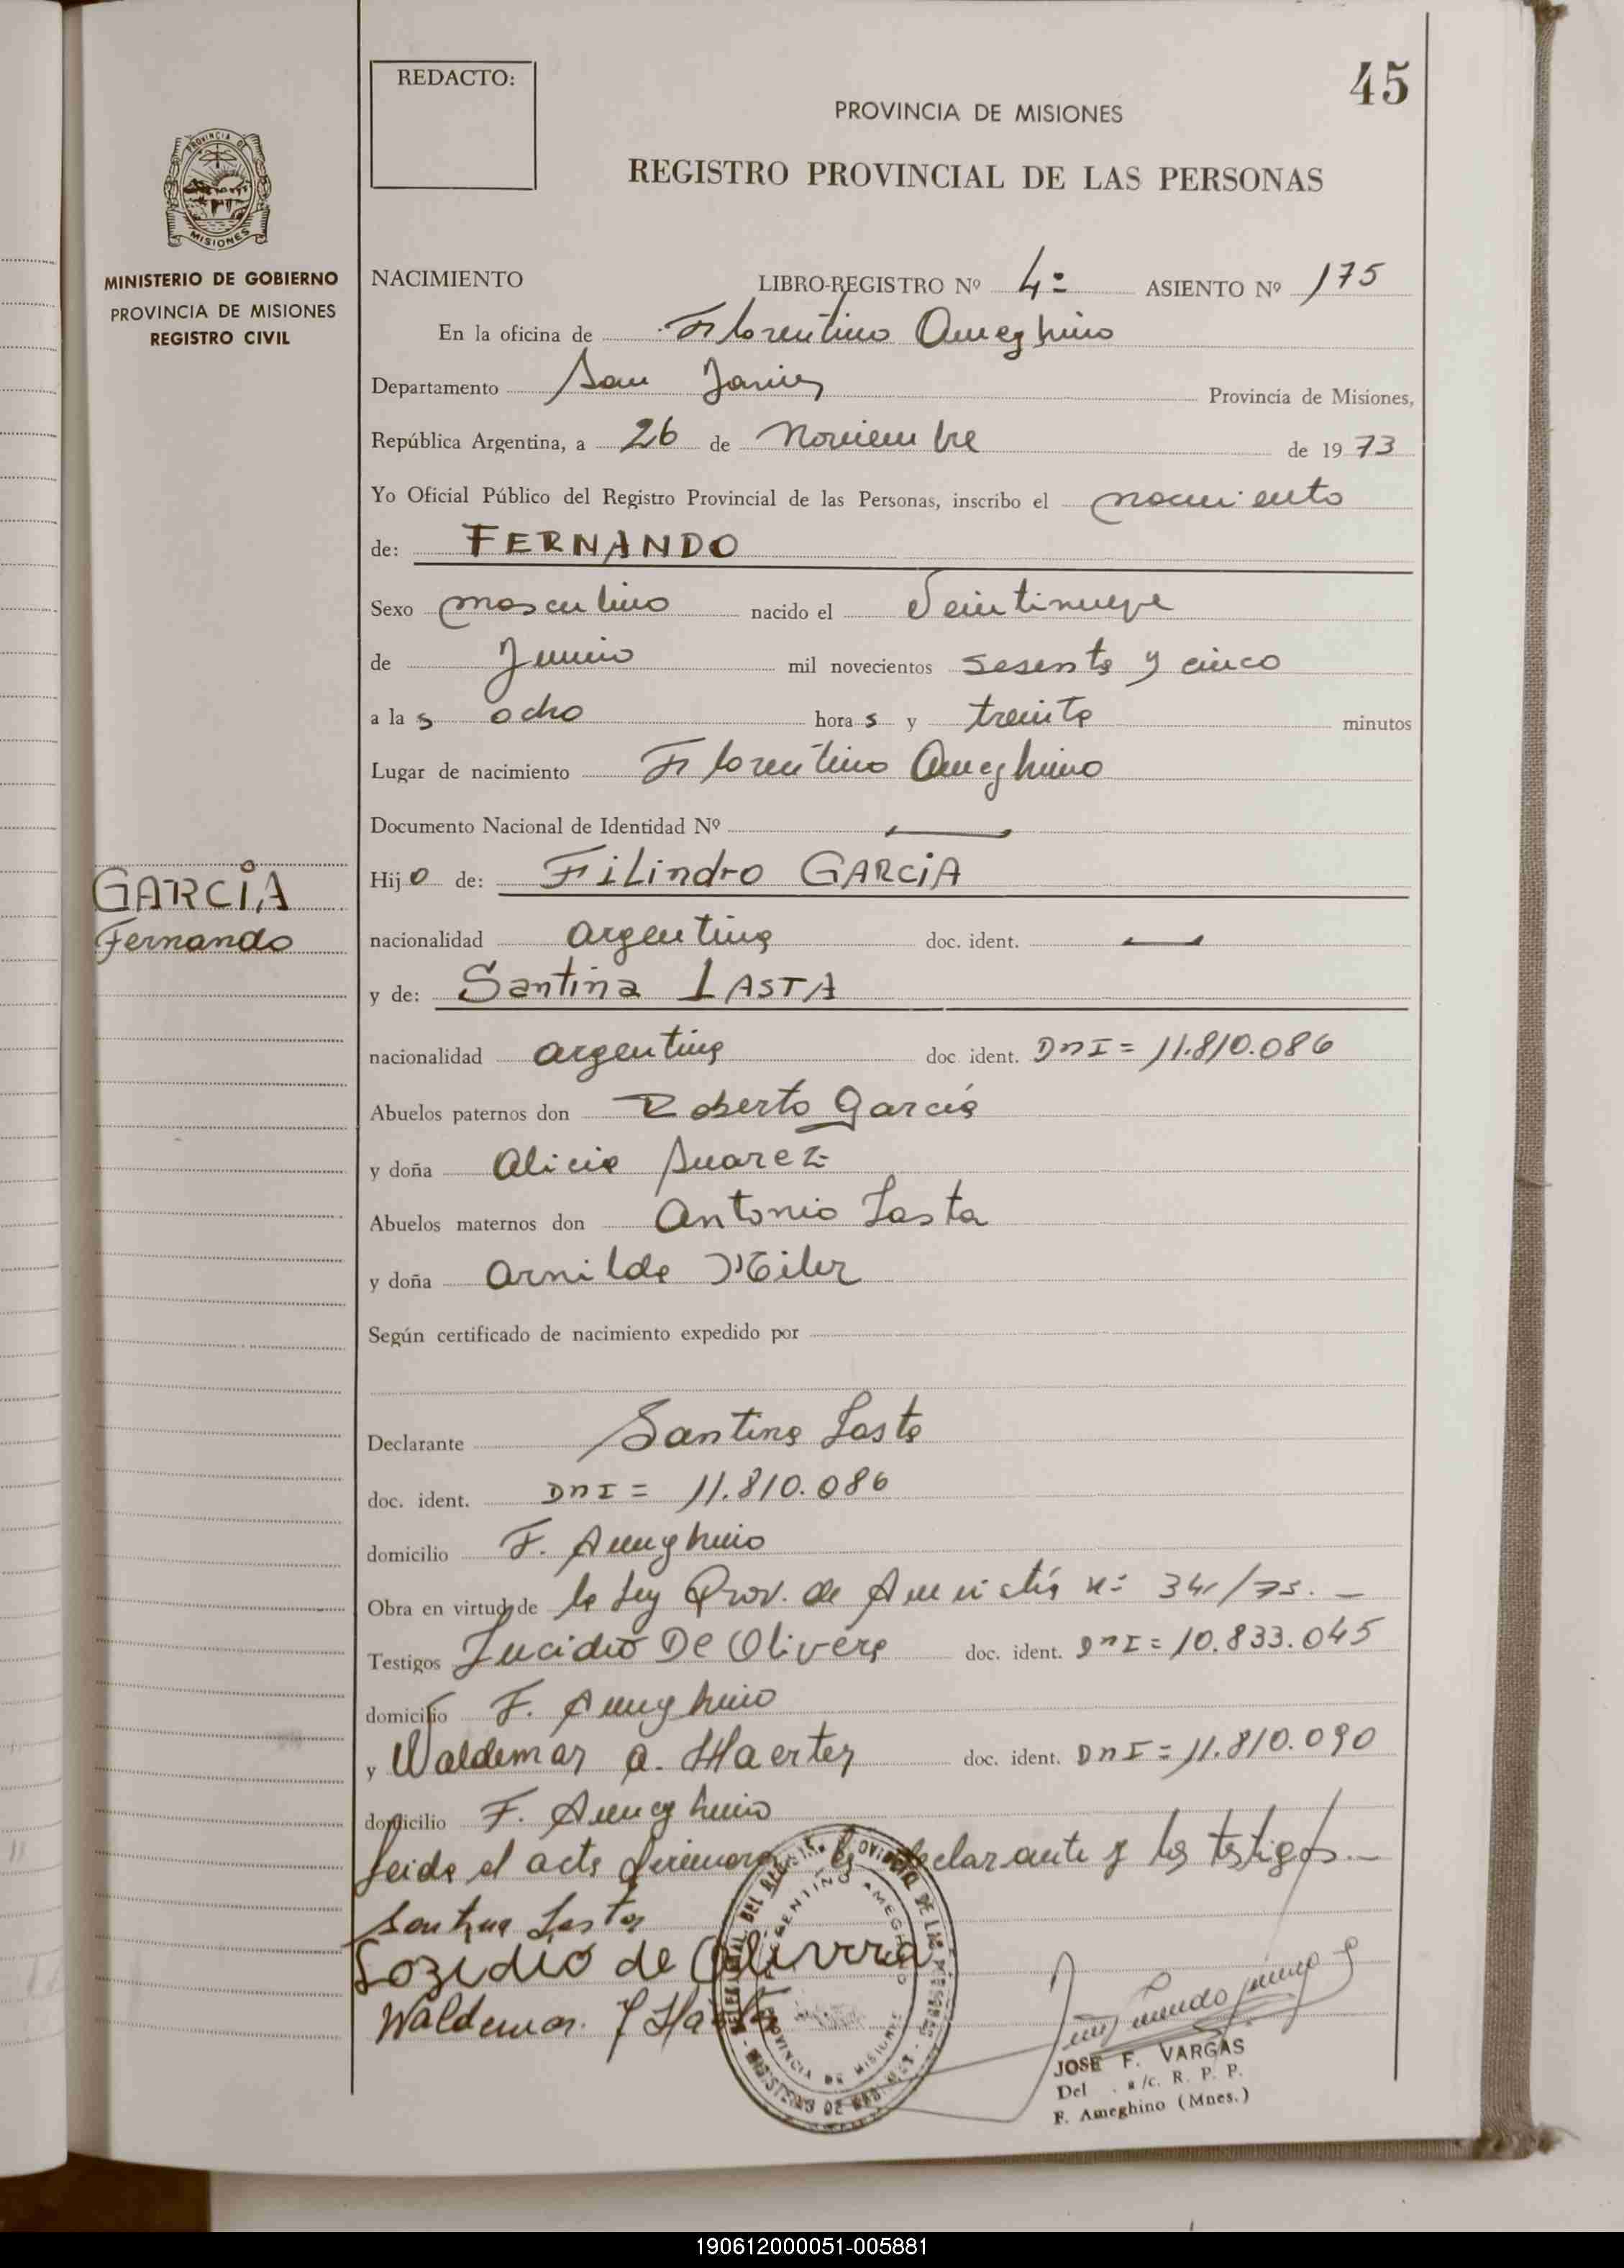 45
REDACTO:
PROVINCIA DE MISIONES
REGISTRO PROVINCIAL DE LAS PERSONAS
PROVINCIA DE
MISIONES
MINISTERIO DE GOBIERNO
PROVINCIA DE MISIONES
REGISTRO CIVIL
NACIMIENTO LIBRO-REGISTRO Nº 4º ASIENTO Nº 175
En la oficina de Florentino Ameghino
Departamento San Javier Provincia de Misiones,
República Argentina, a 26 de Noviembre de 1973
Yo Oficial Público del Registro Provincial de las Personas, inscribo el nacimiento
de: FERNANDO
Sexo masculino nacido el Veintinueve
de Junio mil novecientos sesenta y cinco
a las ocho horas y treinta minutos
Lugar de nacimiento Florentino Ameghino
Documento Nacional de Identidad Nº —
Hijo de: Filindro GARCIA
GARCIA
Fernando
nacionalidad argentina doc. ident. —
y de: Santina LASTA
nacionalidad argentina doc. ident. DNI = 11.810.086
Abuelos paternos don Roberto Garcia
y doña Alicia Suarez
Abuelos maternos don Antonio Lasta
y doña Arnilda
Según certificado de nacimiento expedido por
Declarante Santina Lasta
doc. ident. DNI = 11.810.086
domicilio F. Ameghino
Obra en virtud de la Ley Prov. de Amnistía
Testigos Lucidio De Olivera doc. ident. DNI = 10.833.045
domicilio F. Ameghino
y Waldemar A. Haerter doc. ident. DNI = 11.810.090
domicilio F. Ameghino
Leida el acta firmaron la declarante y los testigos.—
Santina Lasta
Lozidio de Olivera
Waldemar
JOSE F. VARGAS
Del. a/c. R. P. P.
F. Ameghino (Mnes.)
190612000051-005881